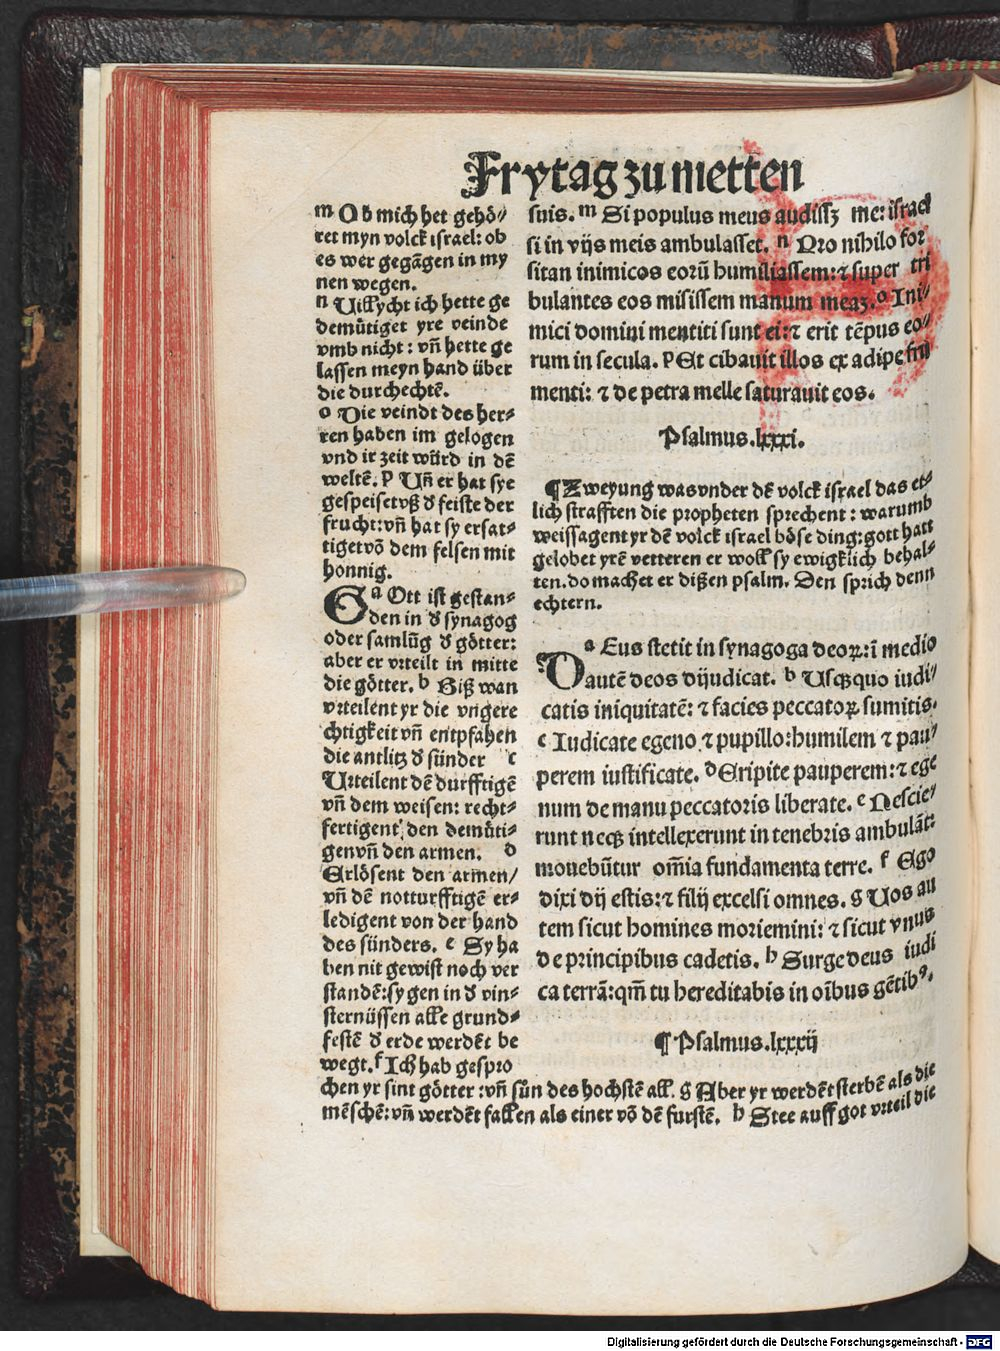 Frytag zu metten
m Ob mich het gehö⸗
ret myn volck israel: ob
es wer gegāgen in my
nen wegen.
n Uillycht ich hette ge
demütiget yre veinde
vmb nicht: vn̄ hette ge
lassen meyn hand über
die durchechtē.
o Die veindt des her⸗
ren haben im gelogen
vnd ir zeit würd in dē
weltē. p Un̄ er hat sye
gespeiset vß d̓ feiste der
frucht: vn̄ hat sy ersat⸗
tiget vō dem felsen mit
honnig.
Ga Ott ist gestan⸗
den in d̓ synagog
oder samlūg d̓ götter:
aber er vrteilt in mitte
die götter. b Biß wan
vrteilent yr die vngere
chtigkeit vn̄ entpfahen
die antlitz d̓ sünder c
Urteilent dē durfftigē
vn̄ dem weisen: recht⸗
fertigent den demüti⸗
gen vn̄ den armen. d
Erlösent den armen/
vn̄ dē notturfftigē er⸗
ledigent von der hand
des sünders. e Sy ha
ben nit gewist noch ver
standē: sy gen in d̓ vin⸗
sternüssen alle grund⸗
festē d̓ erde werdēt be
wegt. f Ich hab gespro
chen yr sint götter: vn̄ sün des hochstē all. g Aber yr werdēt sterbē als die
mēschē: vn̄ werdēt fallen als einer vō dē furstē. h Stee auff got vrteil die
suis. m Si populus meus audissꝫ me: israel
si in vijs meis ambulasset. n Pro nihilo for
sitan inimicos eorū humiliassem: ⁊ super tri
bulantes eos misissem manum meaꝫ. o Ini⸗
mici domini mentiti sunt ei: ⁊ erit tēpus eo⸗
rum in secula. p Et cibauit illos ex adipe fru
menti: ⁊ de petra melle saturauit eos.
Psalmus.lxxxi.
¶ Zweyung was vnder dē volck israel das et⸗
lich strafften die propheten sprechent: warumb
weissagent yr dē volck israel böse ding: gott hatt
gelobet yrē vetteren er woll sy ewigklich behal⸗
ten. do machet er dißen psalm. Den sprich denn
echtern.
Da Eus stetit in synagoga deoꝝ: ī medio
autē deos dijudicat. b Usqꝫquo iudi⸗
catis iniquitatē: ⁊ facies peccatoꝝ sumitis.
c Iudicate egeno ⁊ pupillo: humilem ⁊ pau⸗
perem iustificate. d Eripite pauperem: ⁊ ege
num de manu peccatoris liberate. e Nescie⸗
runt neqꝫ intellexerunt in tenebris ambulāt:
mouebūtur om̄ia fundamenta terre. f Ego
dixi dij estis: ⁊ filij excelsi omnes. g Uos au
tem sicut homines moriemini: ⁊ sicut vnus
de principibus cadetis. h Surge deus iudi
ca terrā: qm̄ tu hereditabis in oībus gētibꝰ.
¶ Psalmus.lxxxij
Digitalisierung gefördert durch die Deutsche Forschungsgemeinschaft - DFG